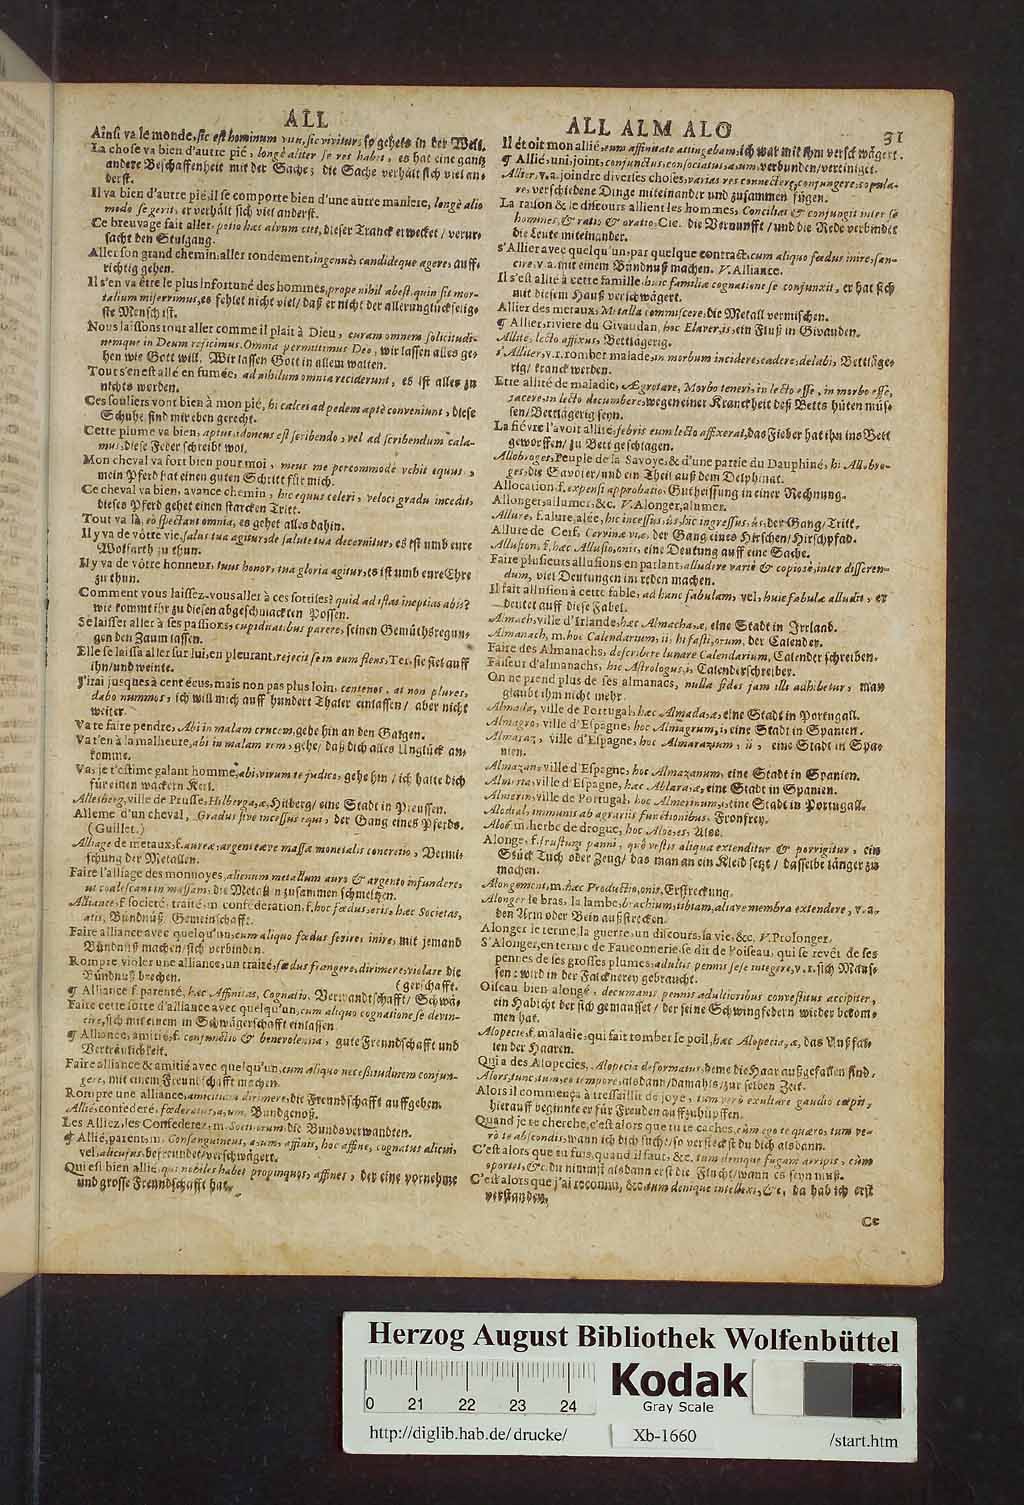 ALL
Ainsi va le monde, sic est hominum vita, sic vivitur, so gehets in der Welt.
La chose va bien d'autre pié, longè aliter se res habet, es hat eine gantz
andere Beschaffenheit mit der Sache; die Sache verhält sich viel an-
derst.
Il va bien d'autre pié, il se comporte bien d'une autre maniere, longè alio
modo se gerit, er verhält sich viel anderst.
Ce breuvage fait aller, potio hæc alvum ciet, dieser Tranck erwecket / verur-
sacht den Stulgang.
Aller son grand chemin, aller rondement, ingenuè, candideque agere, auff-
richtig gehen.
Il s'en va être le plus infortuné des hommes, prope nihil abest, quin sit mor-
talium miserrimus, es fehlet nicht viel / daß er nicht der allerunglückselig-
ste Mensch ist.
Nous laissons tout aller comme il plait à Dieu, curam omnem solicitudi-
nemque in Deum reficimus. Omnia permittimus Deo, wir lassen alles ge-
hen wie Gott will. Wir lassen Gott in allem walten.
Tout s'en est allé en fumée, ad nihilum omnia reciderunt, es ist alles zu
nichts worden.
Ces souliers vont bien à mon pié, hi calcei ad pedem aptè conveniunt, diese
Schuhe sind mir eben gerecht.
Cette plume va bien, aptus, idoneus est scribendo, vel ad scribendum cala-
mus, diese Feder schreibt wol.
Mon cheval va fort bien pour moi, meus me percommodè vehit equus,
mein Pferd hat einen guten Schritt für mich.
Ce cheval va bien, avance chemin, hic equus celeri, veloci gradu incedit,
dieses Pferd gehet einen starcken Tritt.
Tout va là, eò spectant omnia, es gehet alles dahin.
Il y va de vôtre vie, salus tua agitur, de salute tua decernitur, es ist umb eure
Wolfarth zu thun.
Il y va de vôtre honneur, tuus honor, tua gloria agitur, es ist umb eure Ehre
zu thun.
Comment vous laissez-vous aller à ces sottises? quid ad istas ineptias abis?
wie kommt ihr zu diesen abgeschmackten Possen.
Se laisser aller à ses passions, cupiditatibus parere, seinen Gemüthsregun-
gen den Zaum lassen.
Elle se laissa aller sur lui, en pleurant, rejecit se in eum flens, Ter, sie fiel auff
ihn / und weinte.
J'irai jusques à cent écus, mais non pas plus loin, centenos, at non plures,
dabo nummos, ich will mich auff hundert Thaler einlassen / aber nicht
weiter.
Va te faire pendre, Abi in malam crucem, gehe hin an den Galgen.
Vat'en à la malheure, abi in malam rem, gehe / daß dich alles Unglück an-
komme.
Va, je t'estime galant homme, abi, virum te judico, gehe hin / ich halte dich
für einen wackern Kerl.
Allesberg, ville de Prusse, Hilberga, æ, Hilberg / eine Stadt in Preussen.
Alleme d'un cheval, Gradus sive incessus equi, der Gang eines Pferds.
(Guillet.)
Alliage de metaux, f. aureæ, argenteæve massæ monetalis concretio, Vermi-
schung der Metallen.
Faire l'alliage des monnoyes, alienum metallum auro & argento infundere,
ut coalescant in massam, die Metall in zusammen schmeltzen.
Alliance, f. societé, traité, m. confederation, f. hoc fœdus, eris, hæc Societas,
atis, Bündnüß, Gemeinschafft.
Faire alliance avec quelqu'un, cum aliquo fœdus ferire, inire, mit jemand
Bündnuß machen / sich verbinden.
Rompre, violer une alliance, un traité, fœdus frangere, dirimere, violare die
Bündnuß brechen. (gerschafft.
¶ Alliance f. parenté, hæc Affinitas, Cognatio, Verwandtschafft / Schwä-
Faire cette sorte d'alliance avec quelqu'un, cum aliquo cognatione se devin-
cire, sich mit einem in Schwägerschafft einlassen.
¶ Alliance, amitié, f. conjunctio & benevolentia, gute Freundschafft und
Vertraulichkeit.
Faire alliance & amitié avec quelqu'un, cum aliquo necessitudinem conjun-
gere, mit einem Freundschafft machen.
Rompre une alliance, amicitiam dirimere, die Freundschafft auffgeben.
Allié, confederé, fœderatus, a, um, Bundgenoß.
Les Alliez, les Confederez, m. Sociorum die Bundsverwandten.
¶ Allié, parent, m. Consanguineus, a, um, affinis, hoc affine, cognatus alicui,
vel alicujus, befreundet / verschwägert.
Qui est bien allié, qui nobiles habet propinquos, affines, der eine vornehme
und grosse Freundschafft hat.
ALL ALM ALO
31
Il étoit mon allié, eum affinitate attingebam, ich war mit ihm verschwägert.
¶ Allié, uni, joint, conjunctus, consociatus, a, um, verbunden / vereiniget.
Allier, v. a. joindre diverses choses, varias res connectere, conjungere, copula-
re, verschiedene Dinge miteinander und zusammen fügen.
La raison & le discours allient les hommes, Conciliat & conjungit inter se
homines, & ratio & oratio, Cic. die Vernunfft / und die Rede verbindet
die Leute miteinander.
s'Allier avec quelqu'un, par quelque contract, cum aliquo fœdus inire, san-
cire, v. a. mit einem Bündnuß machen. V. Alliance.
Il s'est allié à cette famille, huic familiæ cognatione se conjunxit, er hat sich
mit diesem Hauß verschwägert.
Allier des metaux, Metalla commiscere, die Metall vermischen.
¶ Allier, riviere du Givaudan, hoc Elaver, is, ein Fluß in Givauden.
Allité, lecto affixus, Bettlägerig.
s'Alliter, v. r. tomber malade, in morbum incidere, cadere, delabi, Bettläge-
rig / kranck werden.
Etre allité de maladie, Ægrotare, Morbo teneri, in lecto esse, in morbo esse,
jacere, in lecto decumbere, wegen einer Kranckheit deß Betts hüten müs-
sen / Bettlägerig seyn.
La fiévre l'avoit allité, febris eum lecto affixerat, das Fieber hat ihn ins Bett
geworffen / zu Bett geschlagen.
Allobroges, Peuple de la Savoye, & d'une partie du Dauphiné, hi Allobro-
ges, die Savoier / und ein Theil auß dem Delphinat.
Allocation, f. expensi approbatio, Gutheissung in einer Rechnung.
Allonger, allumer, &c. V. Alonger, alumer.
Allure, f. alure, alée, hic incessus, ûs, hic ingressus, ûs, der Gang / Tritt.
Allure de Cerf, Cervinæ viæ, der Gang eines Hirschen / Hirschpfad.
Allusion, f. hæc Allusio, onis, eine Deutung auff eine Sache.
Faire plusieurs allusions en parlant, alludere variè & copiosè, inter disseren-
dum, viel Deutungen im reden machen.
Il fait allusion à cette fable, ad hanc fabulam, vel, huic fabulæ alludit, er
deutet auff diese Fabel.
Almach, ville d'Irlande, hæc Almacha, æ, eine Stadt in Irrland.
Almanach, m. hoc Calendarium, ii; hi fasti, orum, der Calender.
Faire des Almanachs, describere lunare Calendarium, Calender schreiben.
Faiseur d'almanachs, hic Astrologus, i, Calenderschreiber.
On ne prend plus de ses almanacs, nulla fides jam illi adhibetur, man
glaubt ihm nicht mehr.
Almada, ville de Portugal, hæc Almada, æ, eine Stadt in Portugall.
Almagro, ville d'Espagne, hoc Almagrum, i, eine Stadt in Spanien.
Almaraz, ville d'Espagne, hoc Almarazium, ii, eine Stadt in Spa-
nien.
Almazan, ville d'Espagne, hoc Almazanum, eine Stadt in Spanien.
Almeria, ville d'Espagne, hæc Abdara, æ, eine Stadt in Spanien.
Almerin, ville de Portugal, hoc Almerinum, i, eine Stadt in Portugall.
Alodial, immunis ab agrariis functionibus, Fronfrey.
Aloé, m. herbe de drogue, hoc Aloe, es, Aloe.
Alonge, f. frustum panni, quò vestis aliqua extenditur & porrigitur, ein
Stück Tuch oder Zeug / das man an ein Kleid setzt / dasselbe länger zu
machen.
Alongement, m. hæc Productio, onis, Erstreckung.
Alonger le bras, la jambe, brachium, tibiam, aliave membra extendere, v. a.
den Arm oder Bein außstrecken.
Alonger le terme, la guerre, un discours, la vie, &c. V. Prolonger.
S'Alonger, en terme de Fauconnerie, se dit de l'oiseau, qui se revêt de ses
pennes de les grosses plumes, adultis pennis sese integere, v. r. sich Maus-
sen: wird in der Falcknerey gebraucht.
Oiseau bien alongé, decumanis pennis adultioribus convestitus accipiter,
ein Habicht der sich gemausset / der seine Schwingfedern wieder bekom-
men hat.
Alopecie, f. maladie, qui fait tomber le poil, hæc Alopecia, æ, das Außfal-
len der Haaren.
Qui a des Alopecies, Alopecia deformatus, deme die Haar außgefallen sind.
Alors, tunc, tum, eo tempore, alsdann / damahls / zur selben Zeit.
Alors il commença à tressaillit de joye, tum verò exultare gaudio cœpit,
hierauff beginnte er für Freuden auffzuhüpffen.
Quand je te cherche, c'est alors que tu te caches, cùm ego te quæro, tum ve-
rò te abscondis, wann ich dich suche / so versteckst du dich alsdann.
C'est alors que tu fuis, quand il faut, &c. tum denique fugam arripis, cùm
oportet, &c. du nimmst alsdann erst die Flucht / wann es seyn muß.
C'est alors que j'ai reconnu, &c. tum denique intellexi, &c. da hab ich erst
verstanden,
Ce
Herzog August Bibliothek Wolfenbüttel
0 21 22 23 24
Kodak
Gray Scale
http://diglib.hab.de/drucke/
Xb-1660
/start.htm